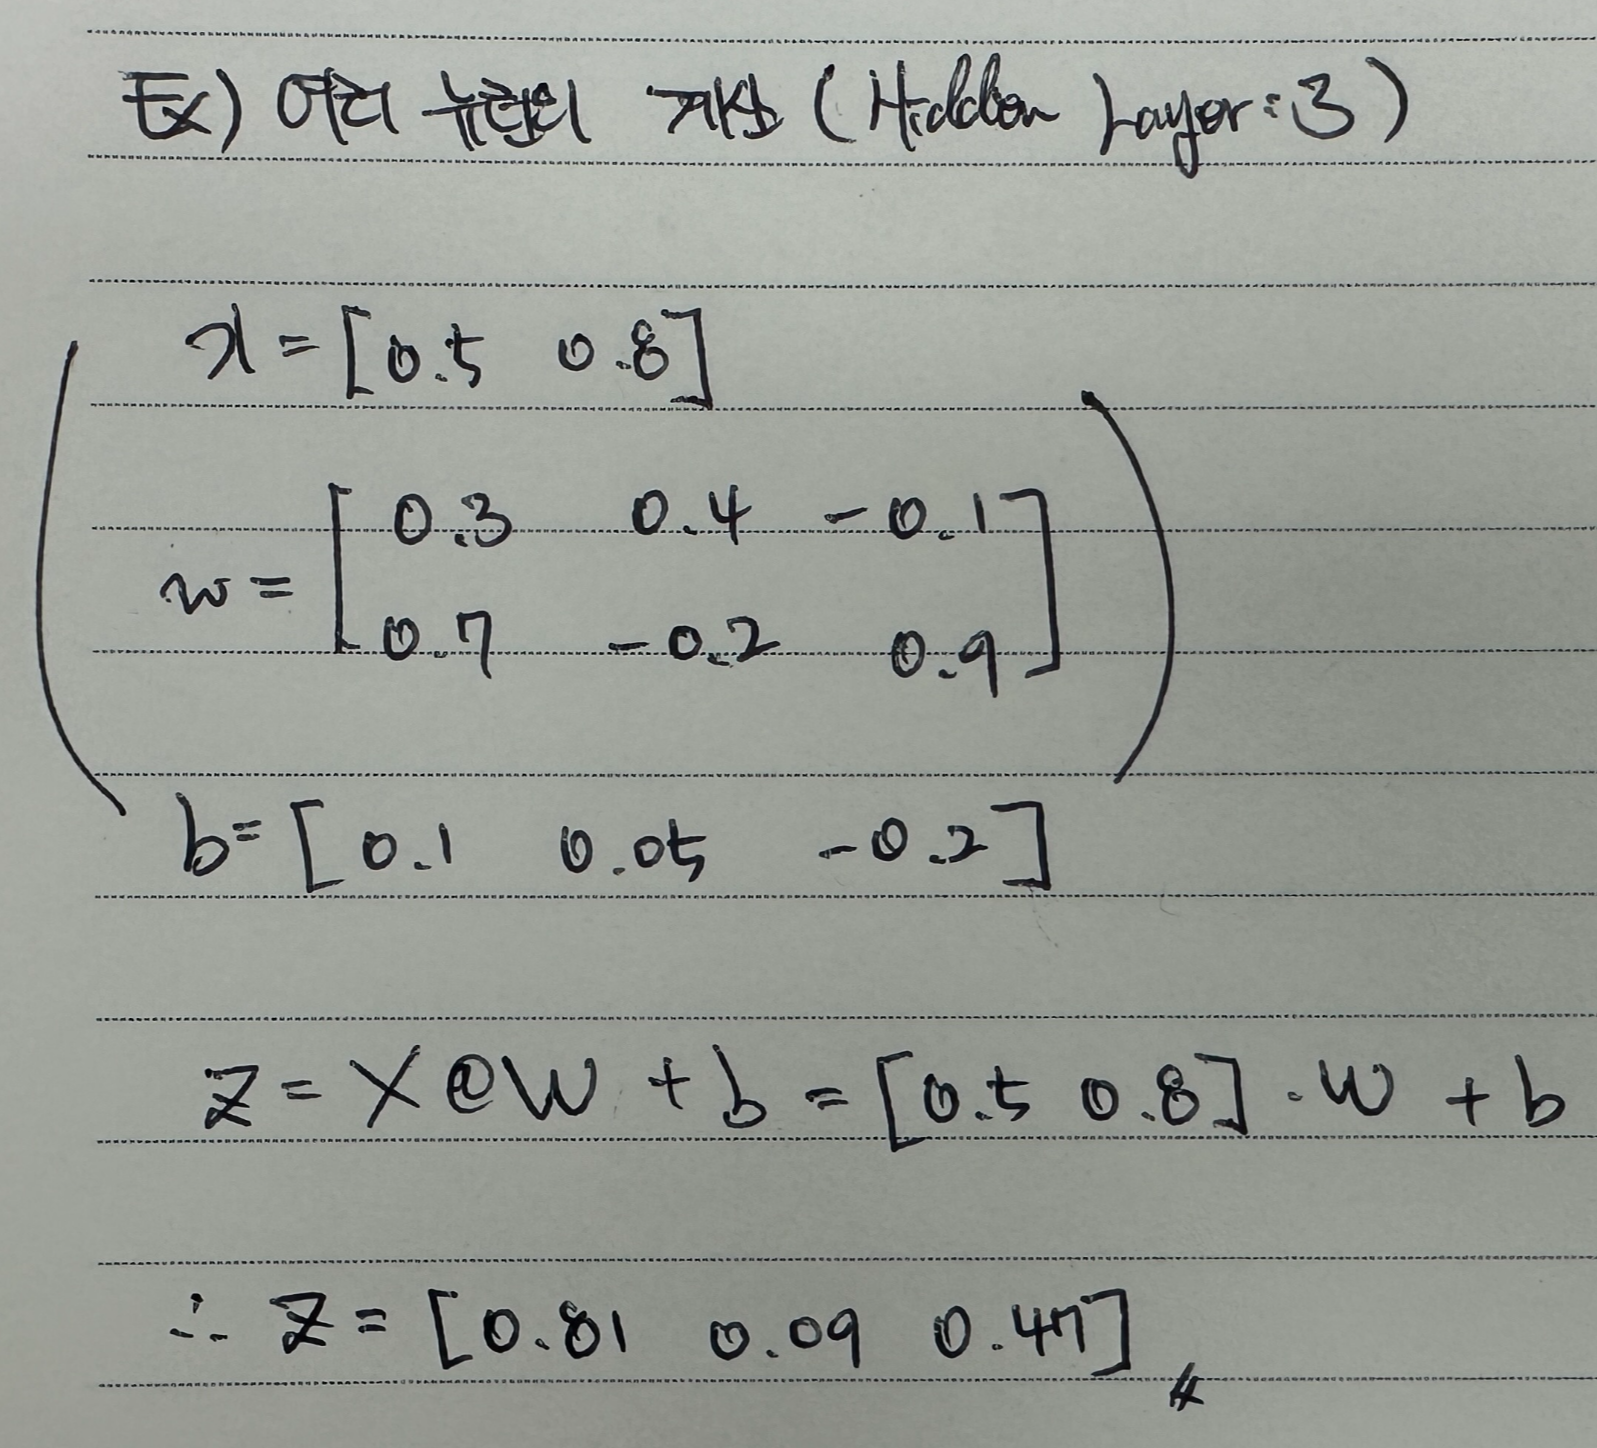 Ex) 여러 뉴런의 계산 (Hidden Layer: 3)
x = [0.5 0.8]
w = [0.3 0.4 -0.1
0.7 -0.2 0.9]
b = [0.1 0.05 -0.2]
Z = X@W + b = [0.5 0.8] · W + b
∴ Z = [0.81 0.09 0.47]